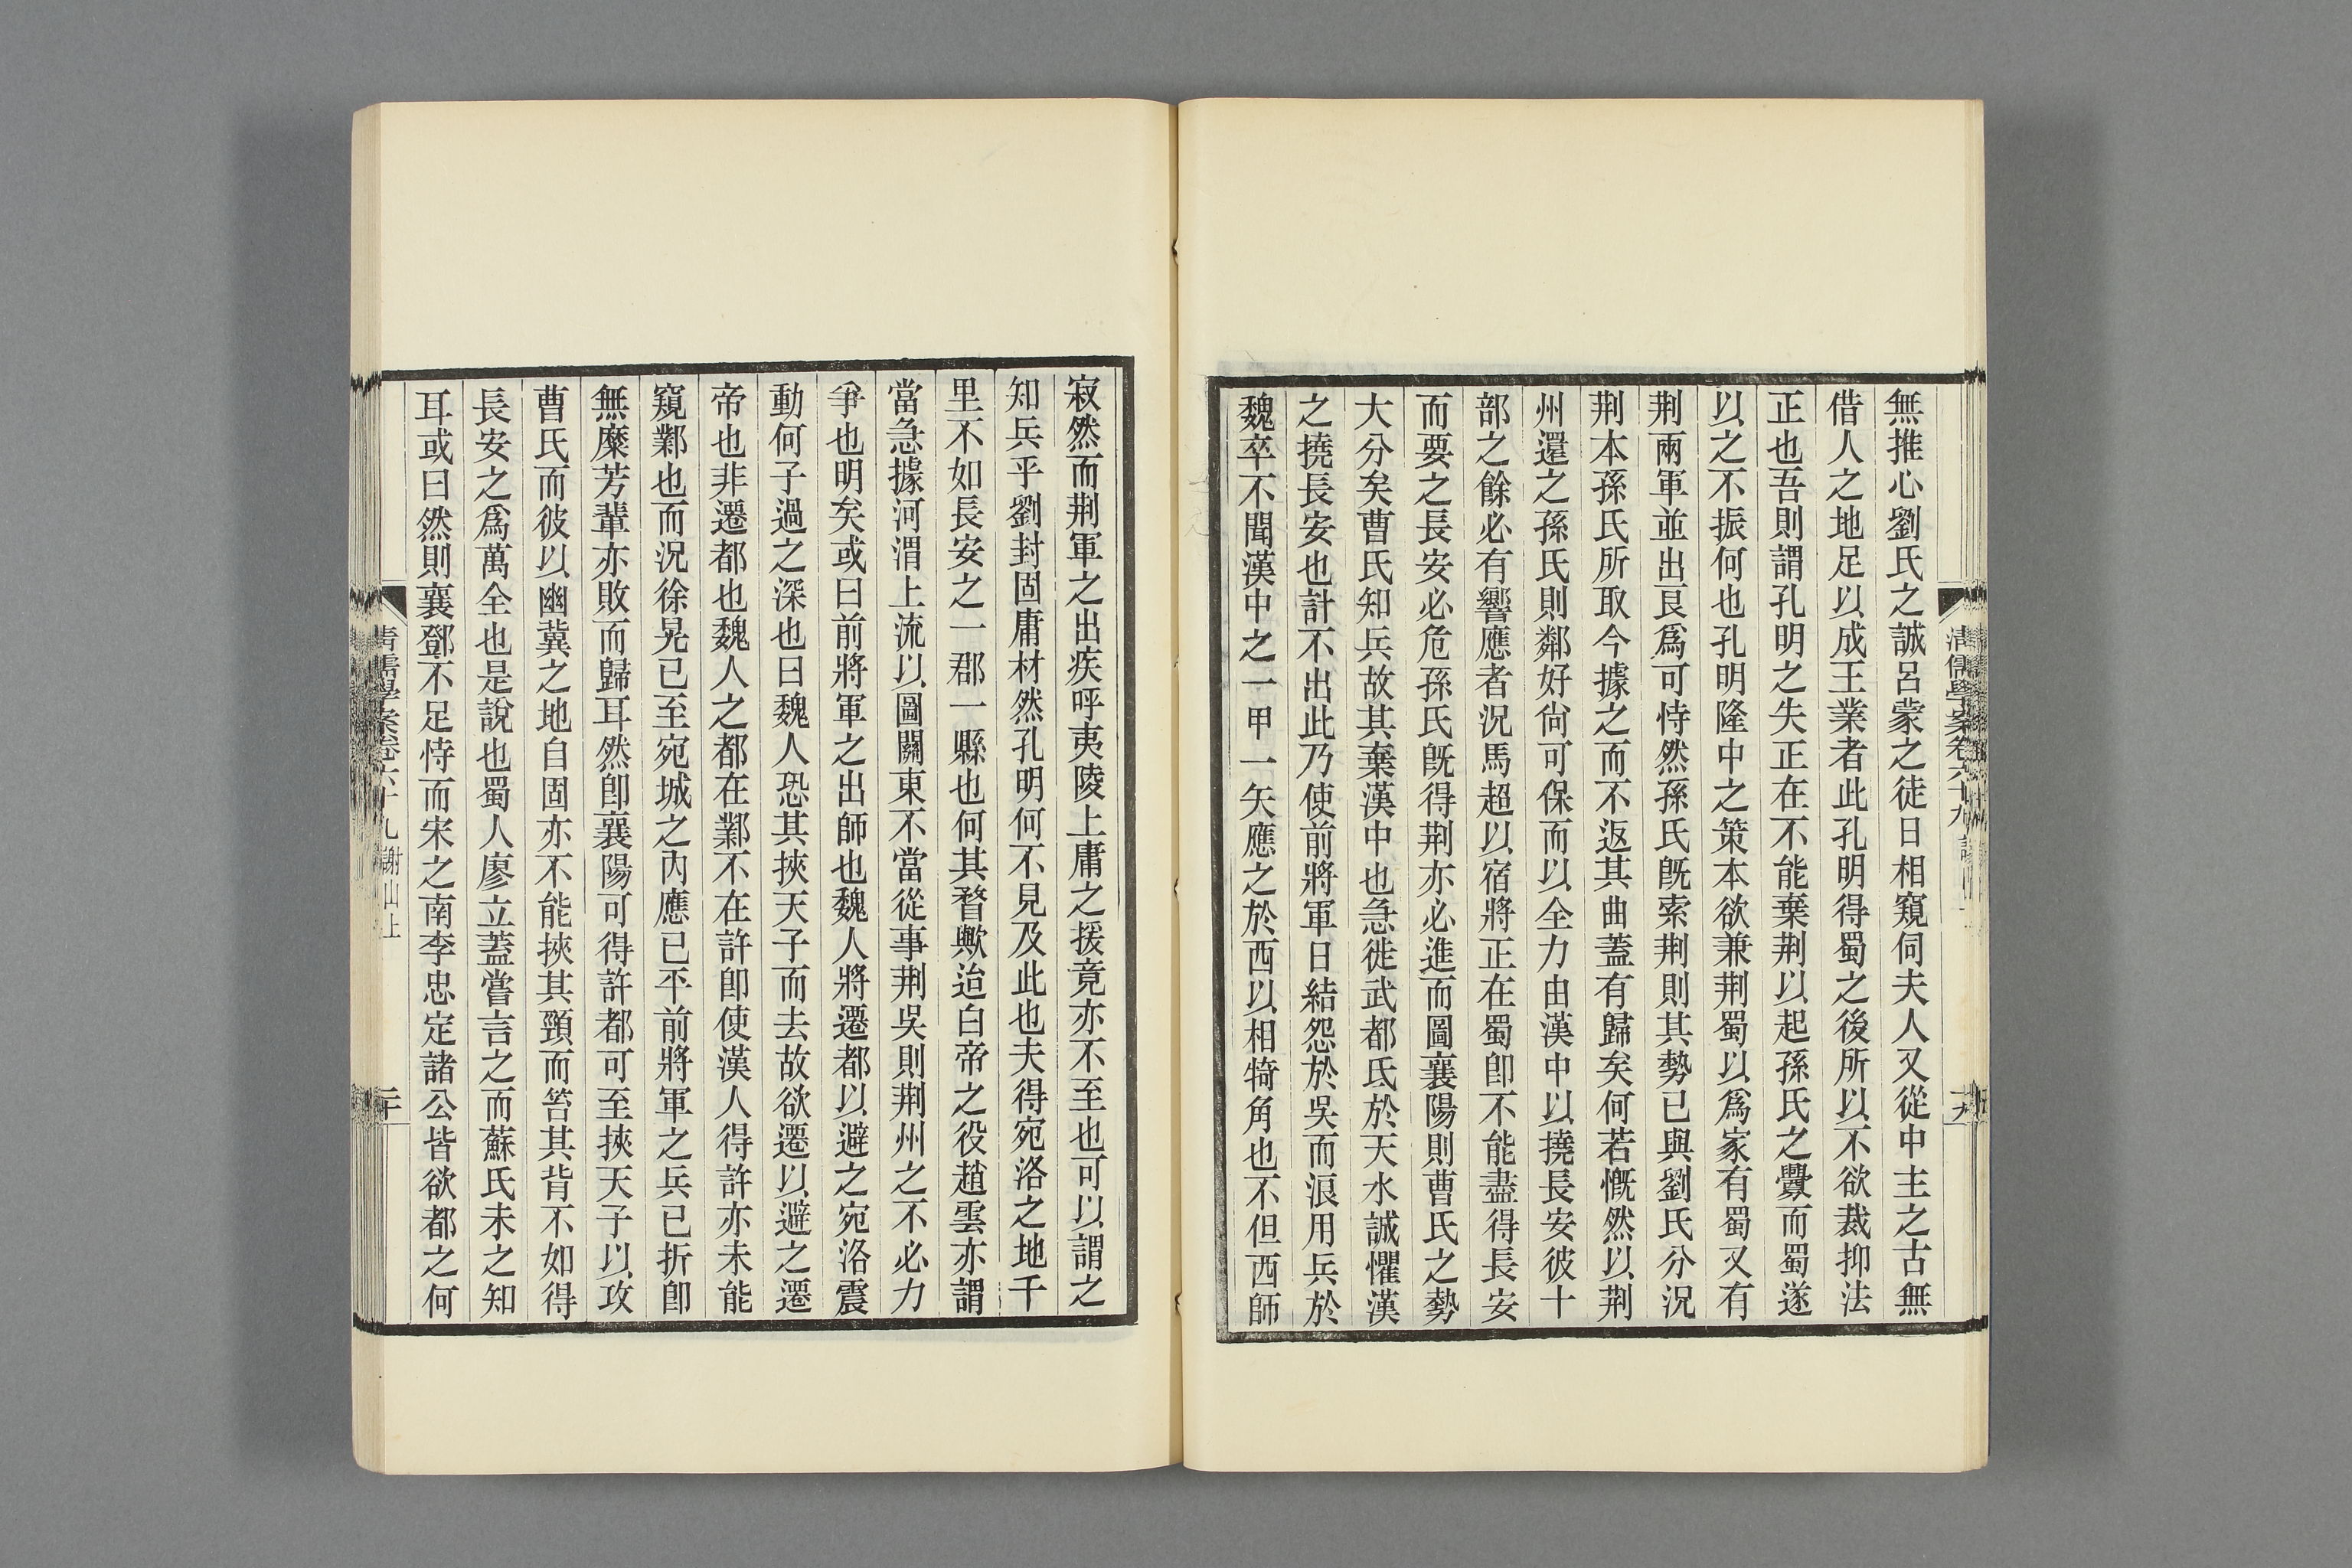 清儒學案卷六十九
十九
無推心劉氏之誠呂蒙之徒日相窺伺夫人又從中主之古無
借人之地足以成王業者此孔明得蜀之後所以不欲裁抑法
正也吾則謂孔明之失正在不能棄荆以起孫氏之釁而蜀遂
以之不振何也孔明隆中之策本欲兼荆蜀以爲家有蜀又有
荆兩軍並出艮爲可恃然孫氏旣索荆則其勢已與劉氏分況
荆本孫氏所取今據之而不返其曲蓋有歸矣何若慨然以荆
州還之孫氏則鄰好尙可保而以全力由漢中以撓長安彼十
部之餘必有響應者況馬超以宿將正在蜀卽不能盡得長安
而要之長安必危孫氏旣得荆亦必進而圖襄陽則曹氏之勢
大分矣曹氏知兵故其棄漢中也急徙武都氐於天水誠懼漢
之撓長安也計不出此乃使前將軍日結怨於吳而浪用兵於
魏卒不聞漢中之一甲一矢應之於西以相犄角也不但西師
寂然而荆軍之出疾呼夷陵上庸之援竟亦不至也可以謂之
知兵乎劉封固庸材然孔明何不見及此也夫得宛洛之地千
里不如長安之一郡一縣也何其瞀歟迨白帝之役趙雲亦謂
當急據河渭上流以圖關東不當從事荆吳則荆州之不必力
爭也明矣或曰前將軍之出師也魏人將遷都以避之宛洛震
動何子過之深也曰魏人恐其挾天子而去故欲遷以避之遷
帝也非遷都也魏人之都在鄴不在許卽使漢人得許亦未能
窺鄴也而況徐晃已至宛城之內應已平前將軍之兵已折卽
無糜芳輩亦敗而歸耳然卽襄陽可得許都可至挾天子以攻
曹氏而彼以幽冀之地自固亦不能挾其頸而笞其背不如得
長安之爲萬全也是說也蜀人廖立蓋嘗言之而蘇氏未之知
耳或曰然則襄鄧不足恃而宋之南李忠定諸公皆欲都之何
清儒學案卷六十九 謝山上
二十